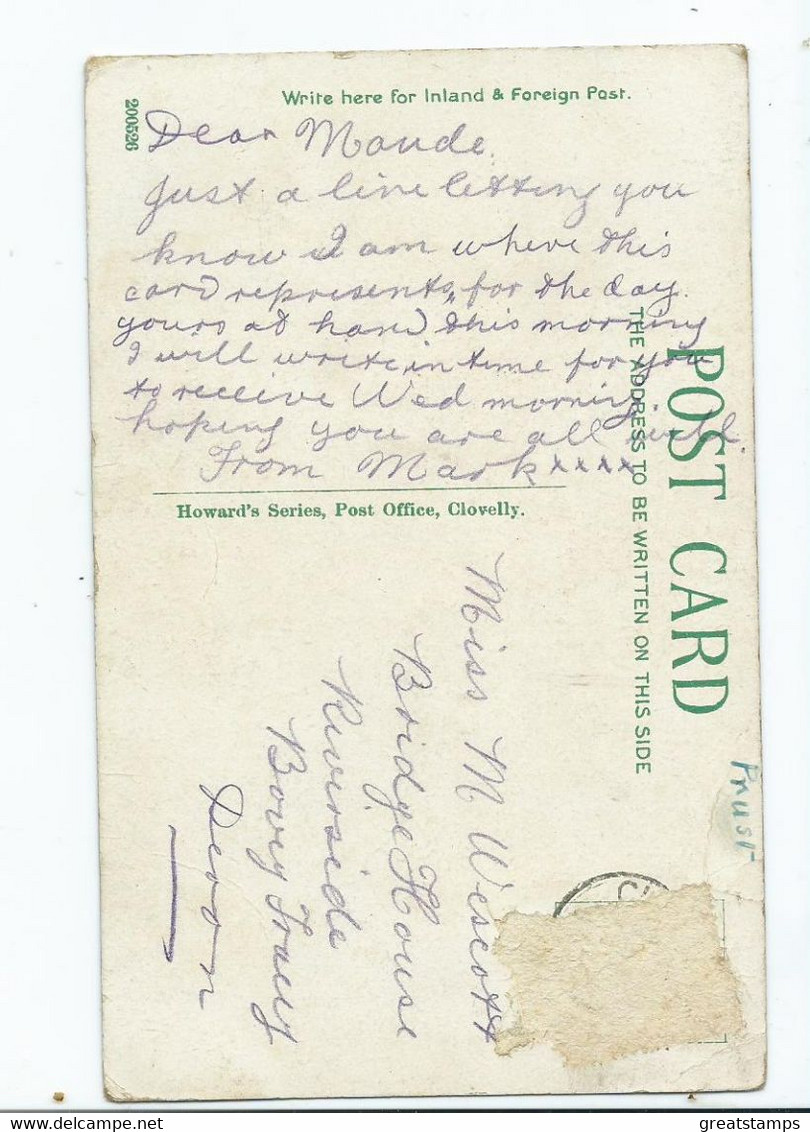 200526
Write here for Inland & Foreign Post.
Dear Maude.
Just a line letting you
know I am where this
card represents, for the day.
yours at hand this morning
I will write in time for you
to receive Wed morning
hoping you are all well
From Mark xxxx
Howard's Series, Post Office, Clovelly.
POST CARD
THE ADDRESS TO BE WRITTEN ON THIS SIDE
Miss M Wescott
Bridge House
Riverside
Bovey Tracey
Devon
Prust
greatstamps